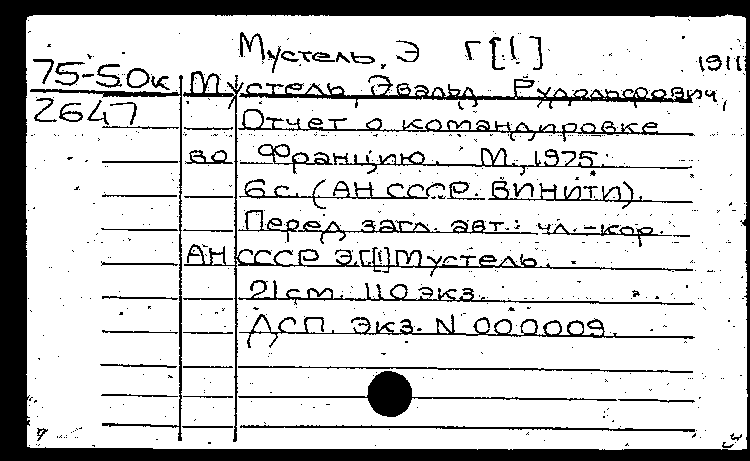 Мустель, Э Г[!]
1911
75-50к Мустель, Эвальд Рудольфович,
2647 Отчет о командировке
во Францию. М., 1975.
6 с. (АН СССР. ВИНИТИ).
Перед загл. авт.: чл.-кор.
АН СССР Э.Г[!] Мустель.
21 см. 110 экз.
ДСП. Экз. N 000009.